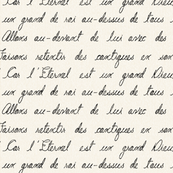 Car l'Eternal est un grand Dieu
un grand de roi au-dessus de tous
Allons au-devant de lui avec des
Faisons retentir des cantiques en son
Car l'Eternal est un grand Dieu
un grand de roi au-dessus de tous
Allons au-devant de lui avec des
Faisons retentir des cantiques en son
Car l'Eternal est un grand Dieu
un grand de roi au-dessus de tous